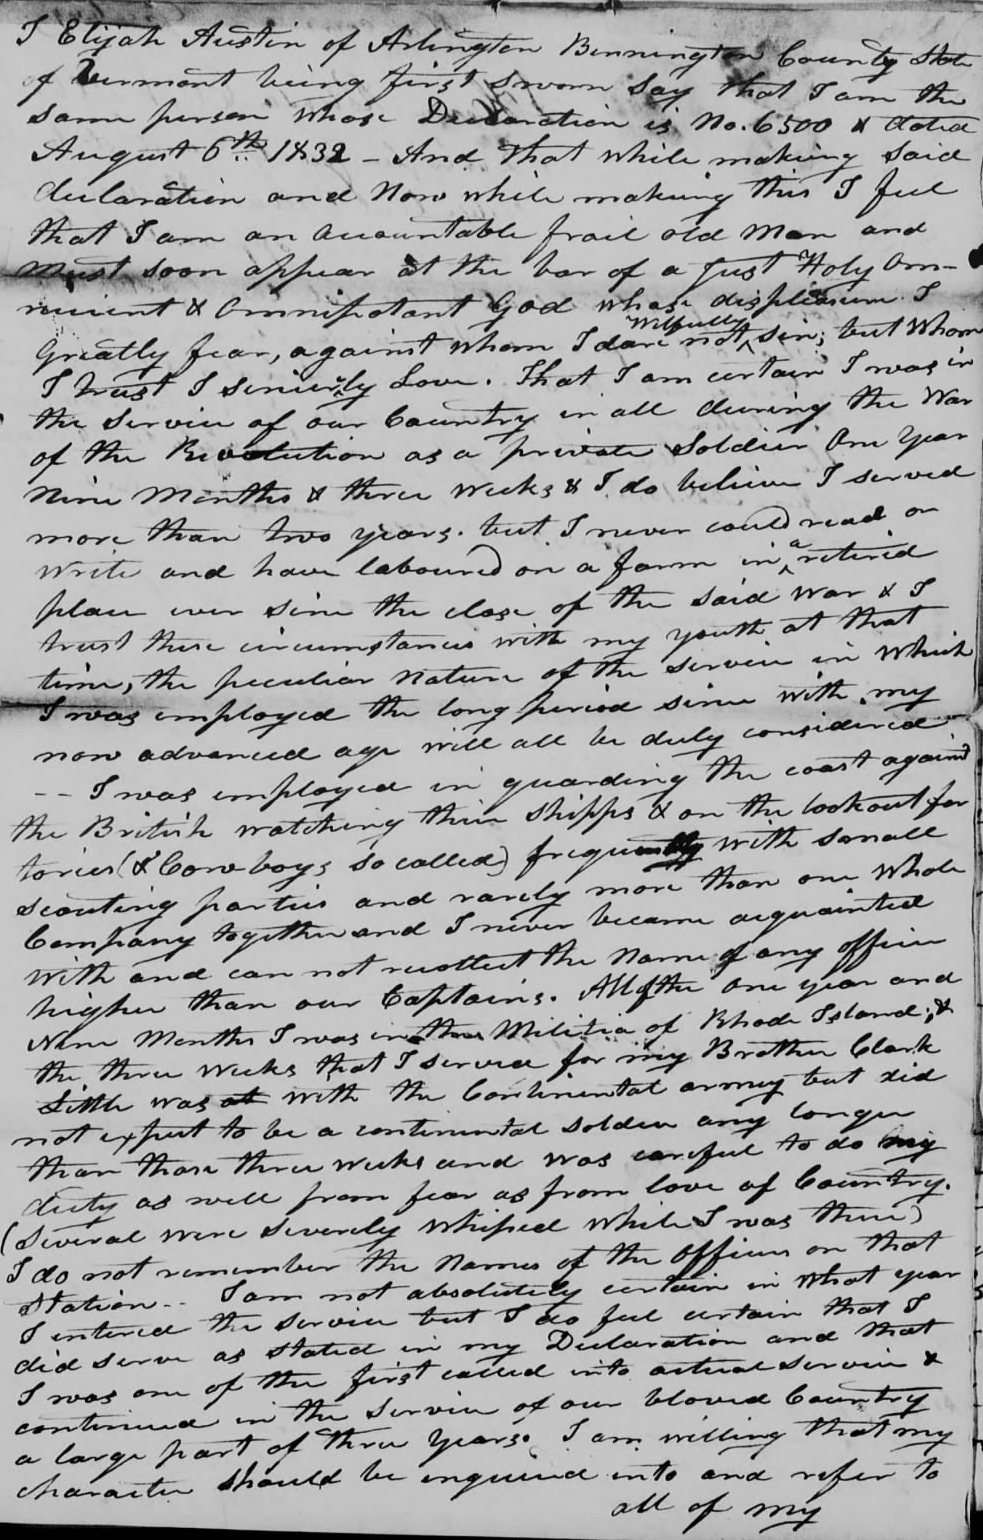 I Elijah Austin of Arlington Bennington County State
of Vermont being first sworn say that I am the
same person whose Declaration is No. 6500 & dated
August 6th 1832 - And that while making said
declaration and Now while making this I feel
that I am an accountable frail old Man and
Must soon appear at the bar of a Just Holy Om-
nicient & Omnipotant God whose displeasure I
Greatly fear, against whom I dare not Wilfully sin; but Whom
I trust I sincerely Love. That I am certain I was in
the Service of our Country in all during the War
of the Revolution as a private Soldier One Year
Nine Months & three weeks & I do believe I served
more than two years. but I never could read or
write and have laboured on a farm in a retired
place ever since the close of the said War & I
trust these circumstances with my youth at that
time, the peculiar nature of the service in which
I was employed the long period since with my
now advanced age will all be duly considered
-- I was employed in guarding the coast against
the British watching their shipps & on the lookout for
tories (& Cow-boys so called) frequently with small
scouting parties and rarely more than one whole
Company together and I never became acquainted
with and can not recollect the Name of any officer
higher than our Captains. All of the One year and
Nine Months I was in the Militia of Rhode Island; &
the three weeks that I served for my Brother Clark
Little was at with the Continental army but did
not expect to be a continental soldier any longer
than those three weeks and was careful to do my
duty as well from fear as from love of Country.
(Several were severely whiped while I was there)
I do not remember the names of the officers on that
Station -- I am not absolutely certain in what year
I entered the service but I do feel certain that I
did serve as stated in my Declaration and that
I was one of the first called into actual service &
continued in the service of our bloved Country
a large part of three years. I am willing that my
character should be enquired into and refer to
all of my